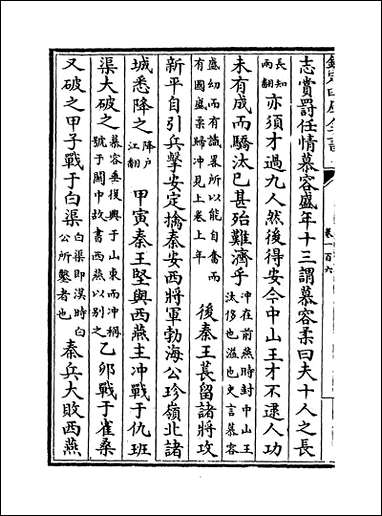 欽定四庫全書
卷一百六
志賞罰任情慕容盛年十三謂慕容柔曰夫十人之長
長知兩翻亦須才過九人然後得安今中山王才不逮人功
未有成而驕汰已甚殆難濟乎冲在前燕時封中山王汰侈也溢也史言慕容
盛幼而有識所以能自奮而有國盛柔歸冲見上卷上年後秦王萇留諸將攻
新平自引兵擊安定擒秦安西將軍勃海公珍嶺北諸
城悉降之降户江翻甲寅秦王堅與西燕主冲戰于仇班
渠大破之慕容垂復興于山東而冲稱號于關中故書西燕以别之乙卯戰于雀桑
又破之甲子戰于白渠白渠即漢時白公所鑿者也秦兵大敗西燕